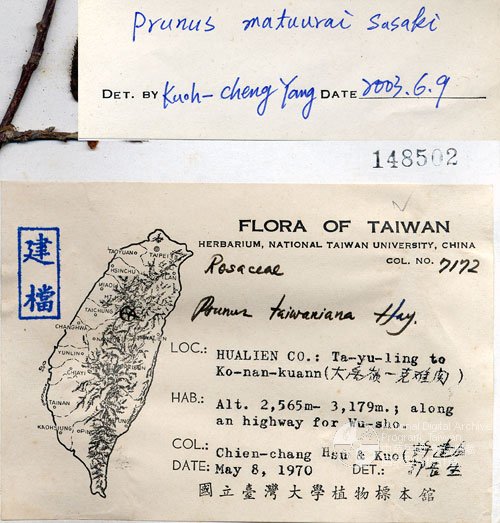 Prunus matuurai Sasaki
DET. BY Kuoh-cheng Yang DATE 2003.6.9
148502
建檔
FLORA OF TAIWAN
HERBARIUM, NATIONAL TAIWAN UNIVERSITY, CHINA
COL. NO. 7172
Rosaceae
Prunus taiwaniana Hay.
LOC.: HUALIEN CO.: Ta-yu-ling to
Ko-nan-kuann(大禹嶺—克難關)
HAB.: Alt. 2,565m- 3,179m.; along
an highway for Wu-sho.
COL.: Chien-chang Hsu & Kuo(
DATE: May 8, 1970 DET.:
國立臺灣大學植物標本館
TAOYUAN
TAIPEI
HSINCHU
TAICHUNG
CHANGHWA
YUNLIN
TAINAN
KAOHSIUNG